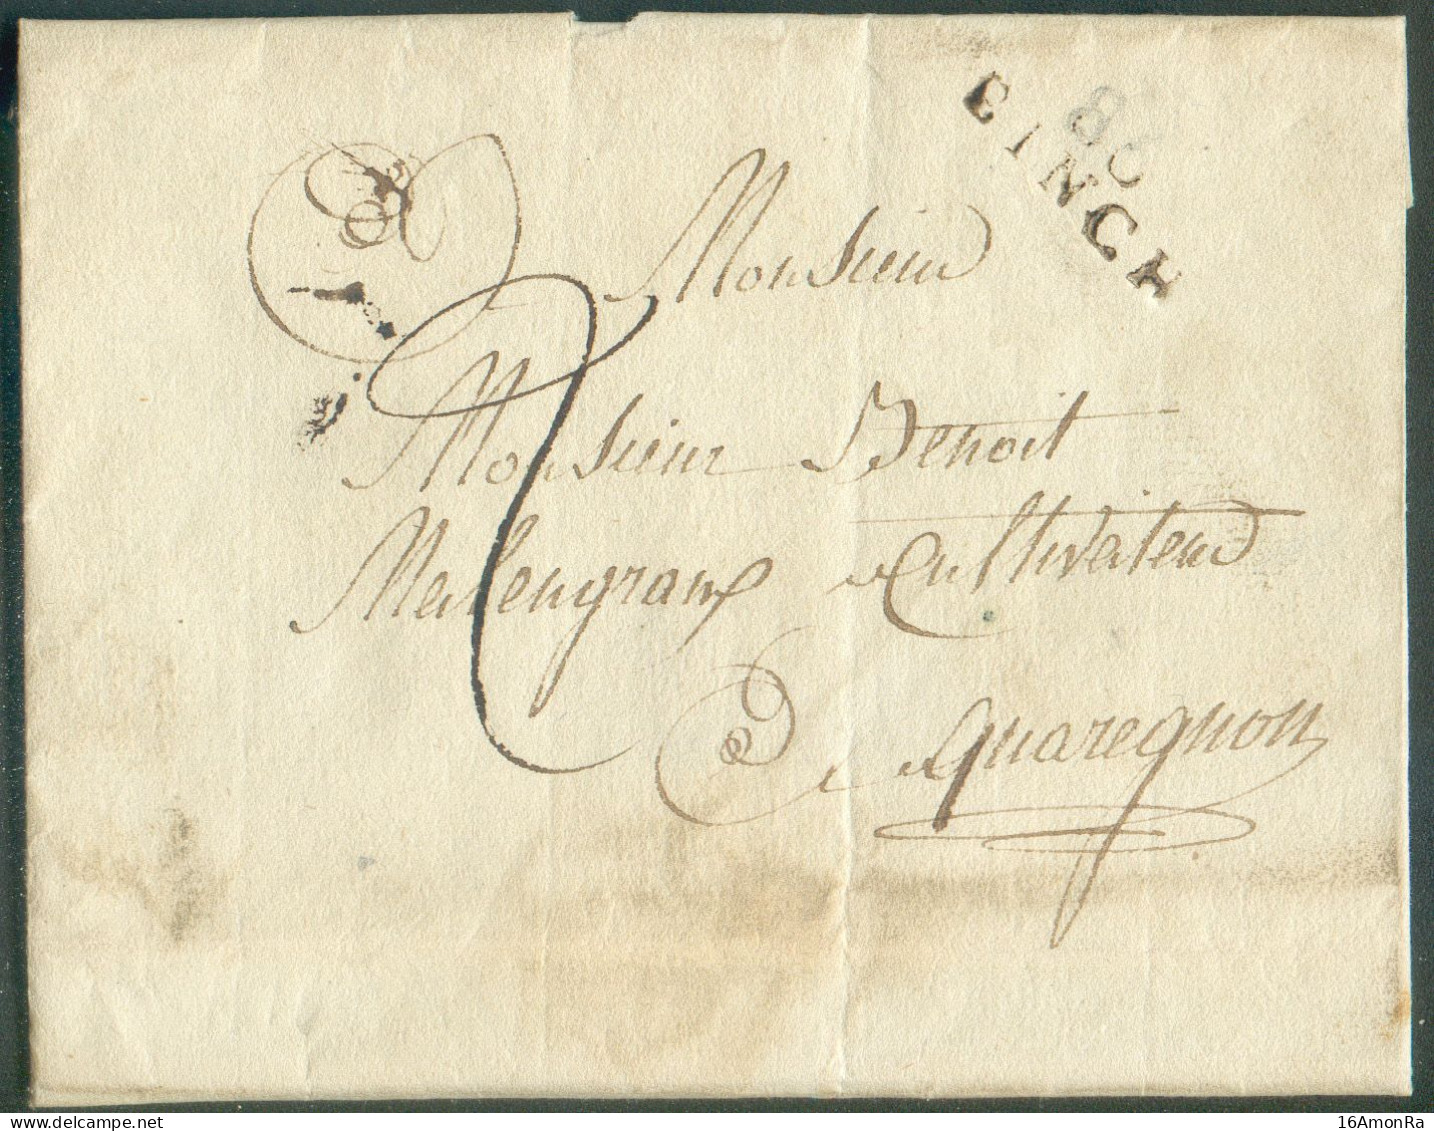 86
BINCH
Monsieur
2
Monsieur Benoit
Malengraux Cultivateur
a quaregnon
16AmonRa